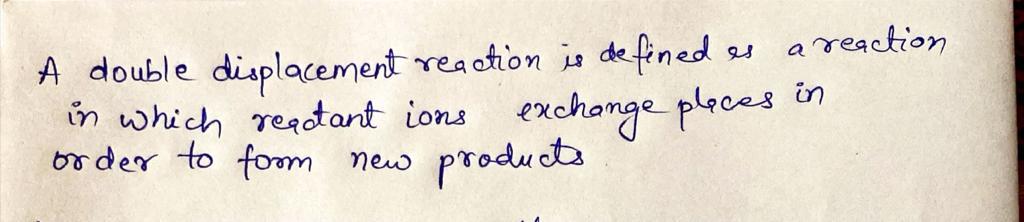 A double displacement reaction is defined as a reaction
in which reactant ions exchange places in
order to form new products